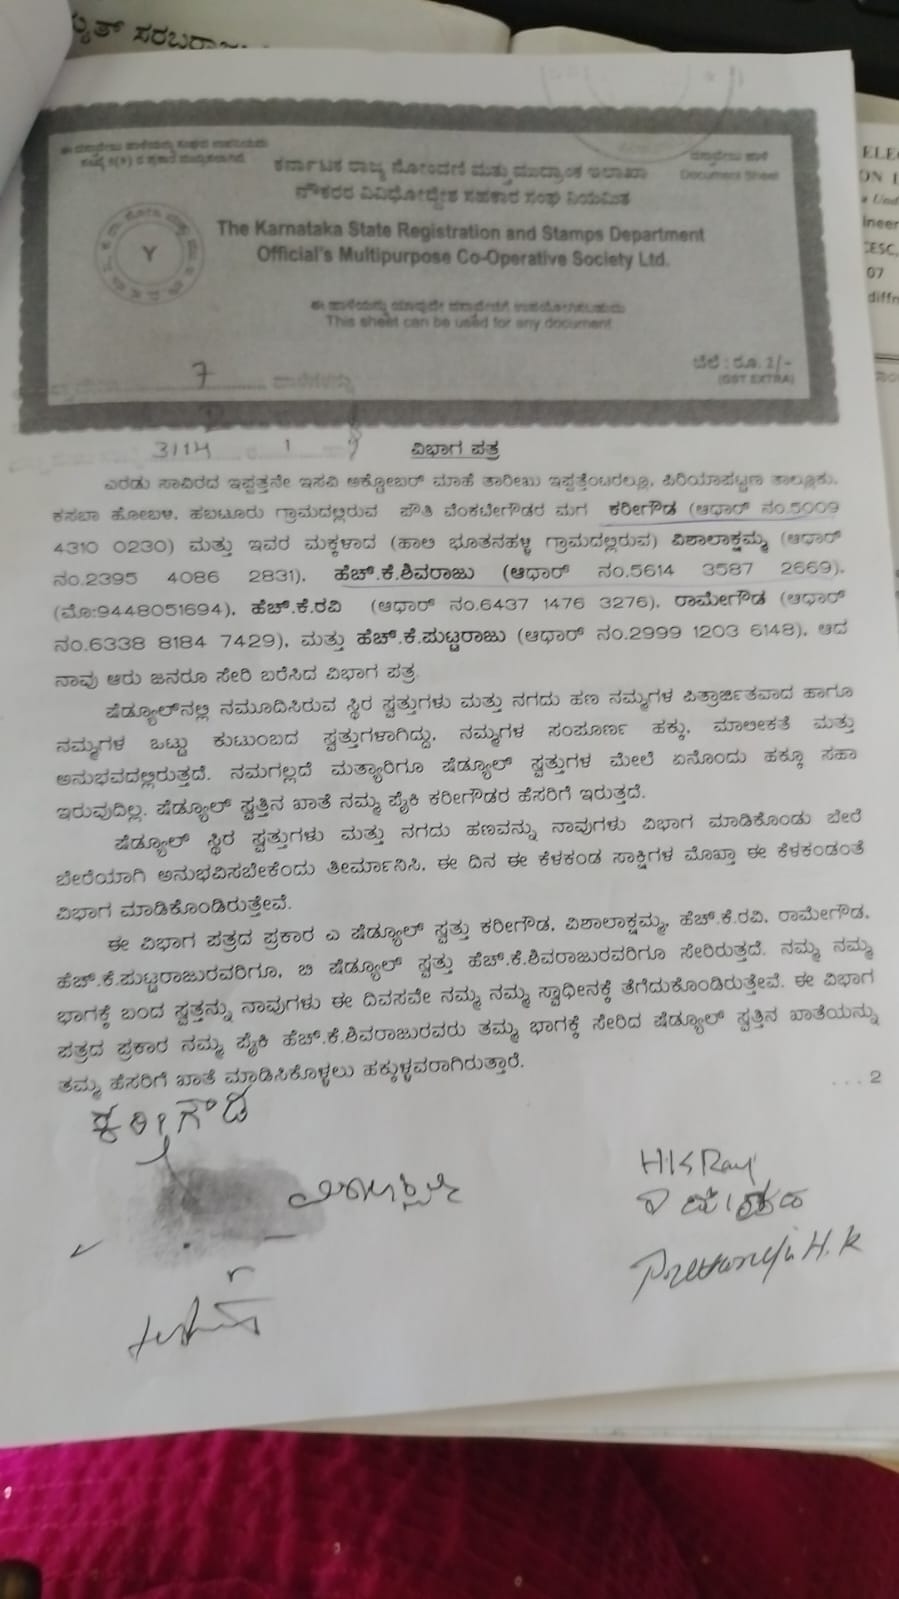 ಕರ್ನಾಟಕ ರಾಜ್ಯ ನೋಂದಣಿ ಮತ್ತು ಮುದ್ರಾಂಕ ಇಲಾಖಾ
ದಸ್ತಾವೇಜು ಹಾಳೆ
Document Sheet
ನೌಕರರ ವಿವಿಧೋದ್ದೇಶ ಸಹಕಾರ ಸಂಘ ನಿಯಮಿತ
The Karnataka State Registration and Stamps Department
Y
Official's Multipurpose Co-Operative Society Ltd.
ಈ ಹಾಳೆಯನ್ನು ಯಾವುದೇ ದಸ್ತಾವೇಜಿಗೆ ಉಪಯೋಗಿಸಬಹುದು
This sheet can be used for any document
ಬೆಲೆ : ರೂ. 2/-
(GST EXTRA)
7
3114
ವಿಭಾಗ ಪತ್ರ
ಎರಡು ಸಾವಿರದ ಇಪ್ಪತ್ತನೇ ಇಸವಿ ಅಕ್ಟೋಬರ್ ಮಾಹೆ ತಾರೀಖು ಇಪ್ಪತ್ತೆಂಟರಲ್ಲೂ, ಪಿರಿಯಾಪಟ್ಟಣ ತಾಲ್ಲೂಕು,
ಕಸಬಾ ಹೋಬಳಿ, ಹಬಟೂರು ಗ್ರಾಮದಲ್ಲಿರುವ ಪೌತಿ ವೆಂಕಟೇಗೌಡರ ಮಗ ಕರೀಗೌಡ (ಆಧಾರ್ ನಂ.5009
4310 0230) ಮತ್ತು ಇವರ ಮಕ್ಕಳಾದ (ಹಾಲಿ ಭೂತನಹಳ್ಳಿ ಗ್ರಾಮದಲ್ಲಿರುವ) ವಿಶಾಲಾಕ್ಷಮ್ಮ (ಆಧಾರ್
ನಂ.2395 4086 2831), ಹೆಚ್.ಕೆ.ಶಿವರಾಜು (ಆಧಾರ್ ನಂ.5614 3587 2669),
(ಮೊ:9448051694), ಹೆಚ್.ಕೆ.ರವಿ (ಆಧಾರ್ ನಂ.6437 1476 3276), ರಾಮೇಗೌಡ (ಆಧಾರ್
ನಂ.6338 8184 7429), ಮತ್ತು ಹೆಚ್.ಕೆ.ಪುಟ್ಟರಾಜು (ಆಧಾರ್ ನಂ.2999 1203 6148), ಆದ
ನಾವು ಆರು ಜನರೂ ಸೇರಿ ಬರೆಸಿದ ವಿಭಾಗ ಪತ್ರ.
ಷೆಡ್ಯೂಲ್‌ನಲ್ಲಿ ನಮೂದಿಸಿರುವ ಸ್ಥಿರ ಸ್ವತ್ತುಗಳು ಮತ್ತು ನಗದು ಹಣ ನಮ್ಮಗಳ ಪಿತ್ರಾರ್ಜಿತವಾದ ಹಾಗೂ
ನಮ್ಮಗಳ ಒಟ್ಟು ಕುಟುಂಬದ ಸ್ವತ್ತುಗಳಾಗಿದ್ದು, ನಮ್ಮಗಳ ಸಂಪೂರ್ಣ ಹಕ್ಕು, ಮಾಲೀಕತೆ ಮತ್ತು
ಅನುಭವದಲ್ಲಿರುತ್ತದೆ. ನಮಗಲ್ಲದೆ ಮತ್ಯಾರಿಗೂ ಷೆಡ್ಯೂಲ್ ಸ್ವತ್ತುಗಳ ಮೇಲೆ ಏನೊಂದು ಹಕ್ಕೂ ಸಹಾ
ಇರುವುದಿಲ್ಲ. ಷೆಡ್ಯೂಲ್ ಸ್ವತ್ತಿನ ಖಾತೆ ನಮ್ಮ ಪೈಕಿ ಕರೀಗೌಡರ ಹೆಸರಿಗೆ ಇರುತ್ತದೆ.
ಷೆಡ್ಯೂಲ್ ಸ್ಥಿರ ಸ್ವತ್ತುಗಳು ಮತ್ತು ನಗದು ಹಣವನ್ನು ನಾವುಗಳು ವಿಭಾಗ ಮಾಡಿಕೊಂಡು ಬೇರೆ
ಬೇರೆಯಾಗಿ ಅನುಭವಿಸಬೇಕೆಂದು ತೀರ್ಮಾನಿಸಿ, ಈ ದಿನ ಈ ಕೆಳಕಂಡ ಸಾಕ್ಷಿಗಳ ಮೊಖ್ತಾ ಈ ಕೆಳಕಂಡಂತೆ
ವಿಭಾಗ ಮಾಡಿಕೊಂಡಿರುತ್ತೇವೆ.
ಈ ವಿಭಾಗ ಪತ್ರದ ಪ್ರಕಾರ ಎ ಷೆಡ್ಯೂಲ್ ಸ್ವತ್ತು ಕರೀಗೌಡ, ವಿಶಾಲಾಕ್ಷಮ್ಮ, ಹೆಚ್.ಕೆ.ರವಿ, ರಾಮೇಗೌಡ,
ಹೆಚ್.ಕೆ.ಪುಟ್ಟರಾಜುರವರಿಗೂ, ಬಿ ಷೆಡ್ಯೂಲ್ ಸ್ವತ್ತು ಹೆಚ್.ಕೆ.ಶಿವರಾಜುರವರಿಗೂ ಸೇರಿರುತ್ತದೆ. ನಮ್ಮ ನಮ್ಮ
ಭಾಗಕ್ಕೆ ಬಂದ ಸ್ವತ್ತನ್ನು ನಾವುಗಳು ಈ ದಿವಸವೇ ನಮ್ಮ ನಮ್ಮ ಸ್ವಾಧೀನಕ್ಕೆ ತೆಗೆದುಕೊಂಡಿರುತ್ತೇವೆ. ಈ ವಿಭಾಗ
ಪತ್ರದ ಪ್ರಕಾರ ನಮ್ಮ ಪೈಕಿ ಹೆಚ್.ಕೆ.ಶಿವರಾಜುರವರು ತಮ್ಮ ಭಾಗಕ್ಕೆ ಸೇರಿದ ಷೆಡ್ಯೂಲ್ ಸ್ವತ್ತಿನ ಖಾತೆಯನ್ನು
ತಮ್ಮ ಹೆಸರಿಗೆ ಖಾತೆ ಮಾಡಿಸಿಕೊಳ್ಳಲು ಹಕ್ಕುಳ್ಳವರಾಗಿರುತ್ತಾರೆ.
...2
ಕರೀಗೌಡ
HK Ravi
Puttaraju H.K